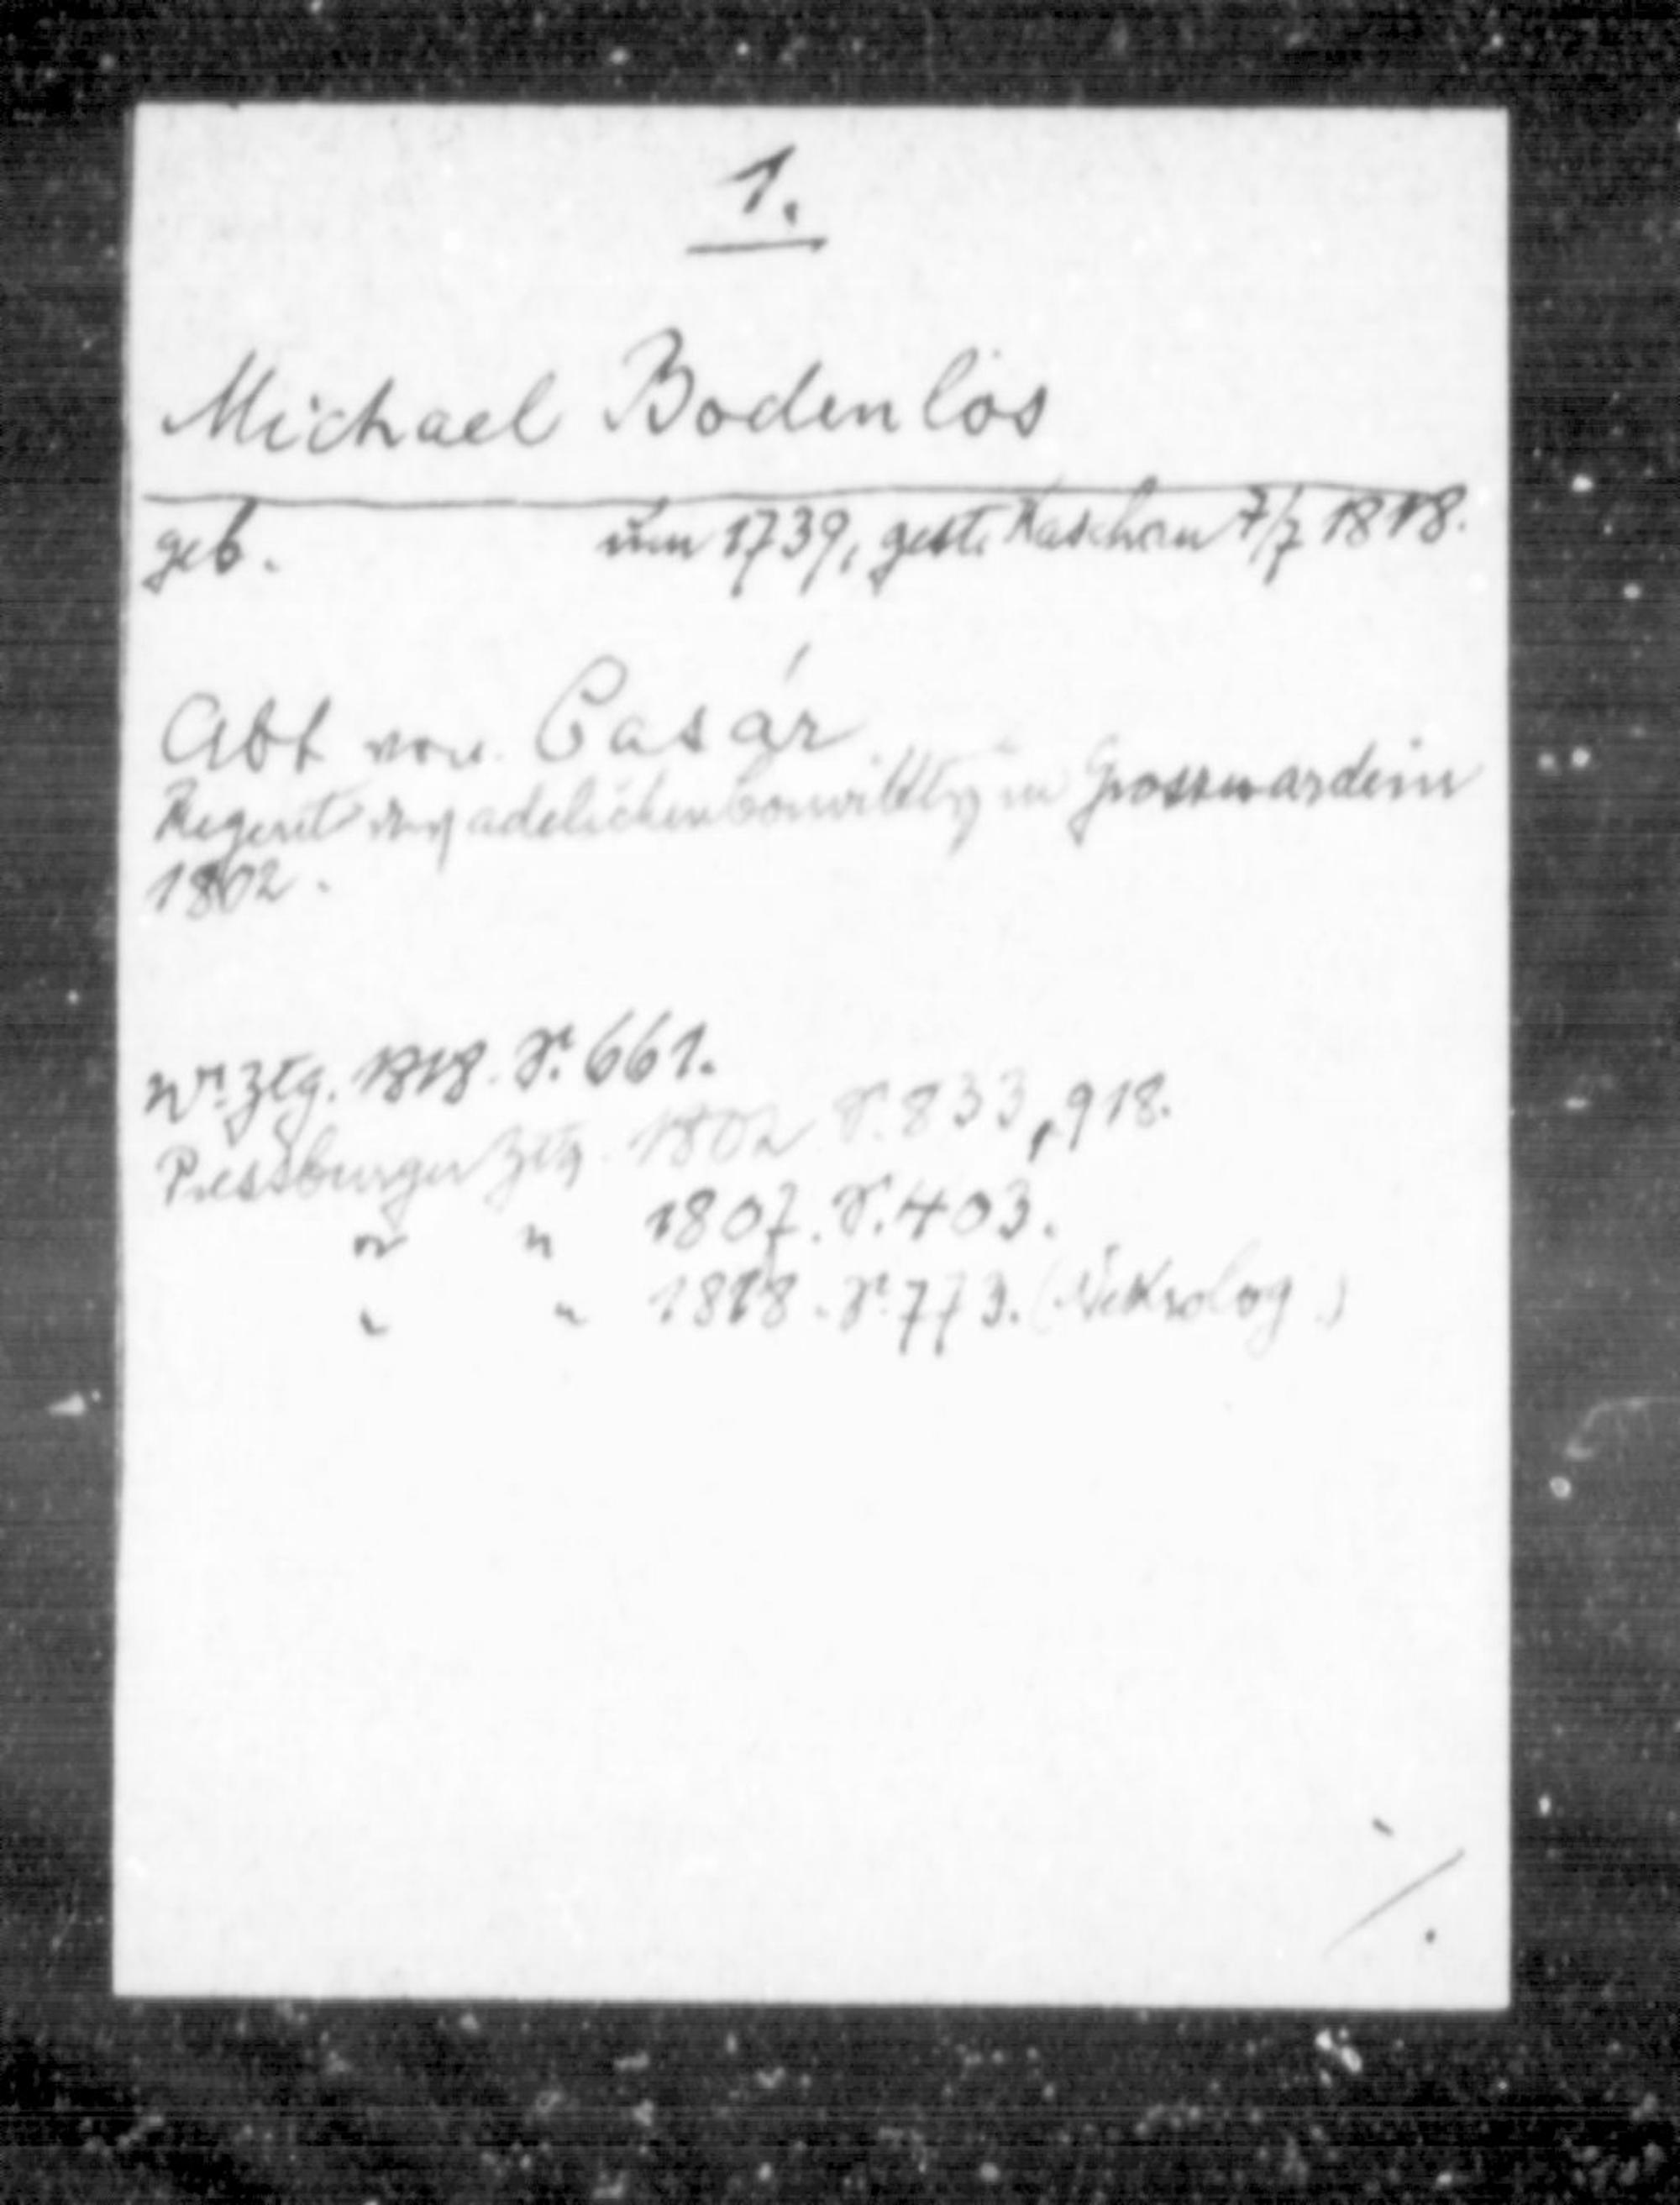 1.
Michael Bodenlos
geb. um 1739, gest. Kaschau 7/7 1818.
Abt von Casár
Regent des adelichen Convikts in Grosswardein
1802.
Wr. Ztg. 1818. S. 661.
Pressburger Ztg. 1802 S. 833, 918.
" " 1807. S. 403.
" " 1818. S. 773. (Nekrolog.)
/.